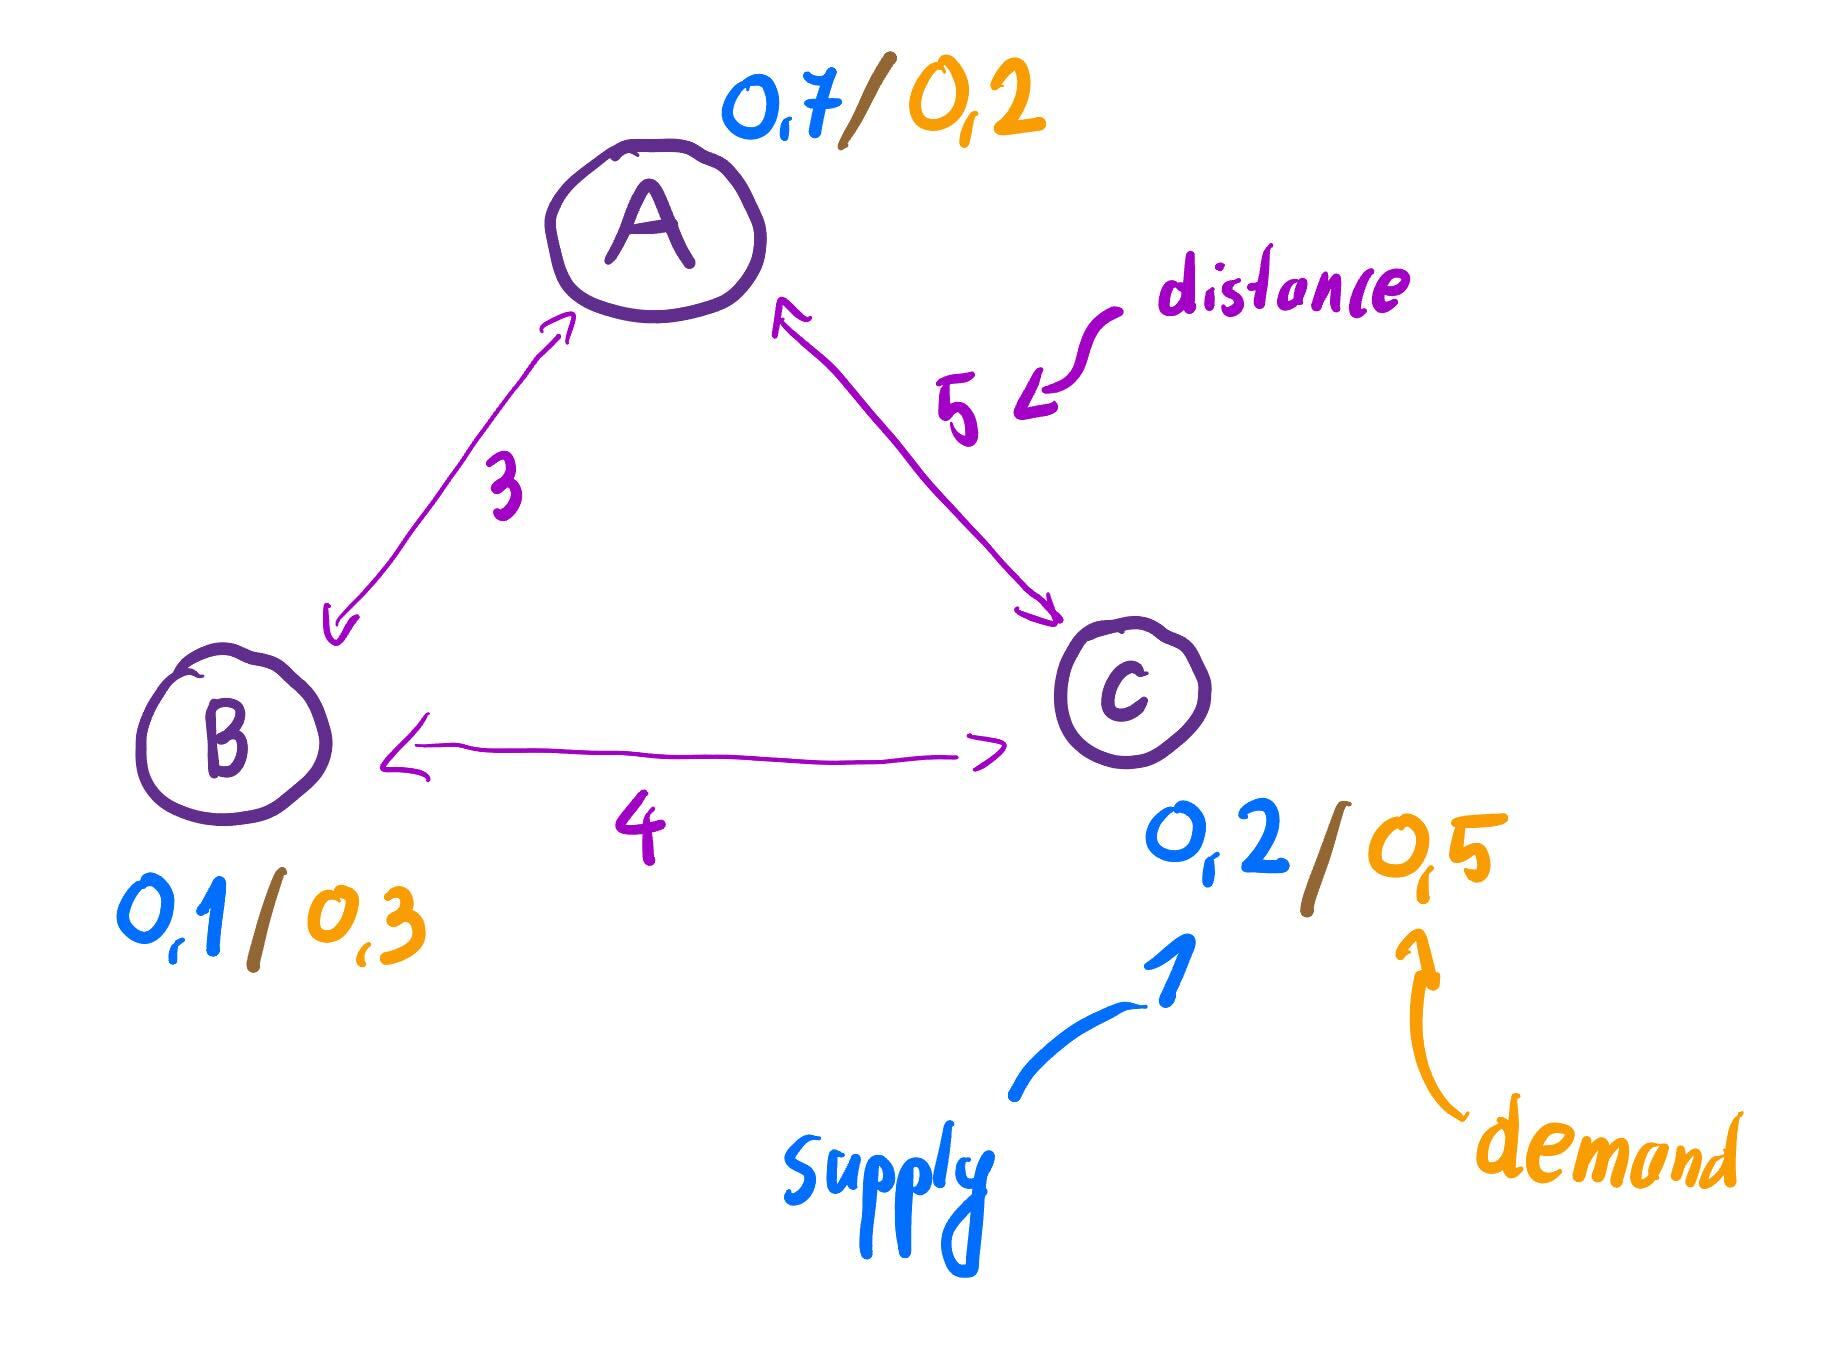 0,7/0,2
A
distance
5
3
B
C
4
0,2/0,5
0,1/0,3
supply
demand